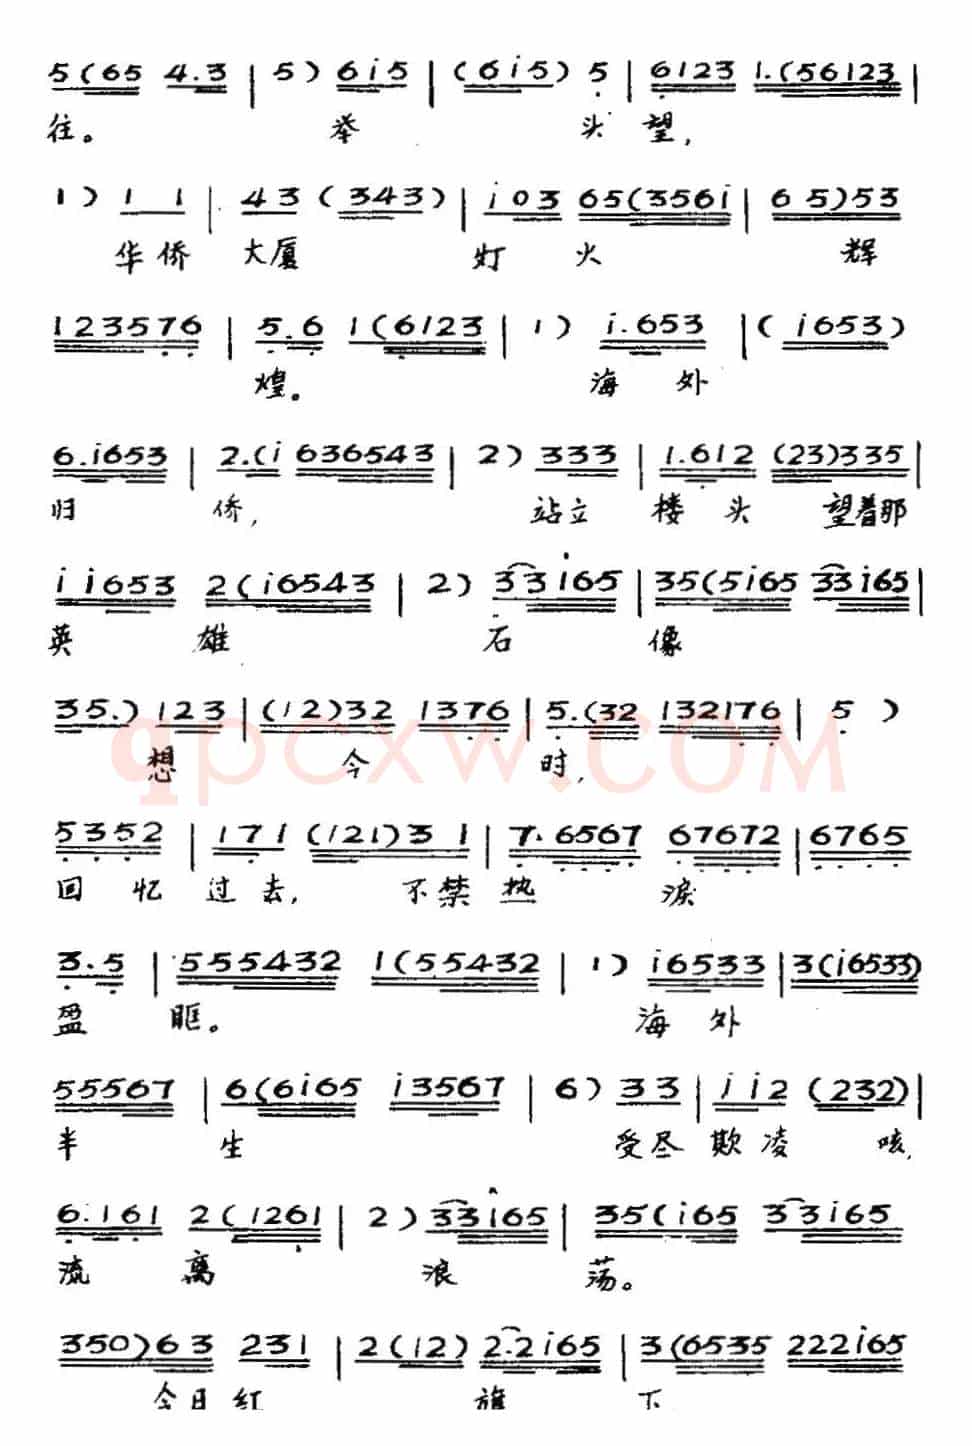 5(65 4.3 | 5) 6i5 | (6i5) 5 | 6123 1.(56123 |
往。 举 头望,
1) 1 1 | 43 (343) | i03 65(3561 | 65)53
华侨 大厦 灯 火 辉
123576 | 5.6 1(6123 | 1) i.653 | (i653)
煌。 海 外
6.i653 | 2.(i 636543 | 2) 333 | 1.612 (23)335 |
归 侨, 站立 楼 头 望着那
i i653 2(i6543 | 2) 33i65 | 35(5i65 33i65 |
英 雄 石 像
35.) 123 | (12)32 1376 | 5.(32 132176 | 5 )
想 今 时,
qpcxw.COM
5352 | 171 (121)3 1 | 7.6567 67672 | 6765
回 忆 过去, 不禁热 泪
3.5 | 555432 1(55432 | 1) i6533 | 3(i6533)
盈 眶。 海 外
55567 | 6(6i65 i3567 | 6) 33 | i i2 (232) |
半 生 受尽 欺凌 咳,
6.161 2(1261 | 2) 33i65 | 35(i65 33i65
流 离 浪 荡。
350)63 231 | 2(12) 2.2i65 | 3(6535 222i65
今日红 旗 下